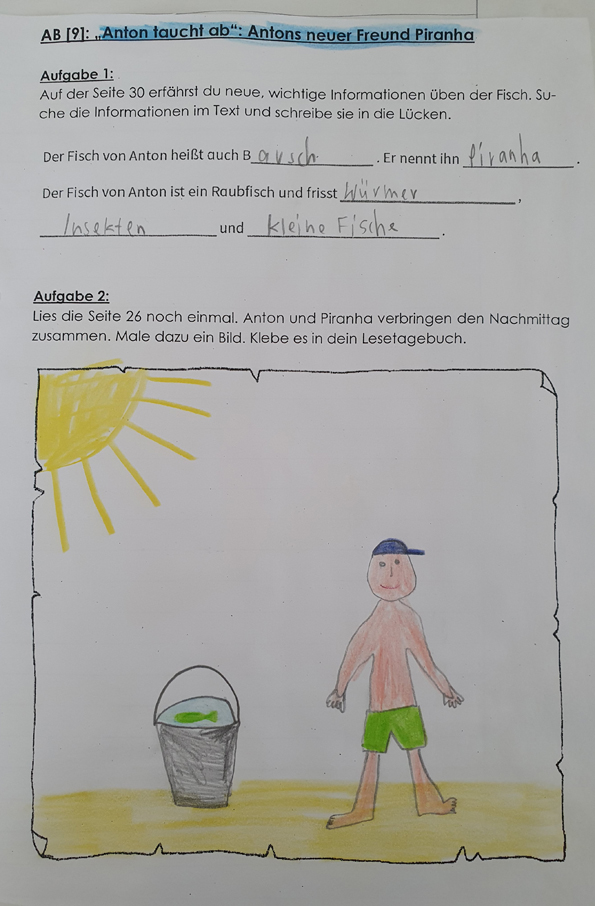 AB [9]: „Anton taucht ab“: Antons neuer Freund Piranha
Aufgabe 1:
Auf der Seite 30 erfährst du neue, wichtige Informationen üben der Fisch. Su-
che die Informationen im Text und schreibe sie in die Lücken.
Der Fisch von Anton heißt auch Barsch. Er nennt ihn Piranha.
Der Fisch von Anton ist ein Raubfisch und frisst Würmer,
Insekten und kleine Fische.
Aufgabe 2:
Lies die Seite 26 noch einmal. Anton und Piranha verbringen den Nachmittag
zusammen. Male dazu ein Bild. Klebe es in dein Lesetagebuch.